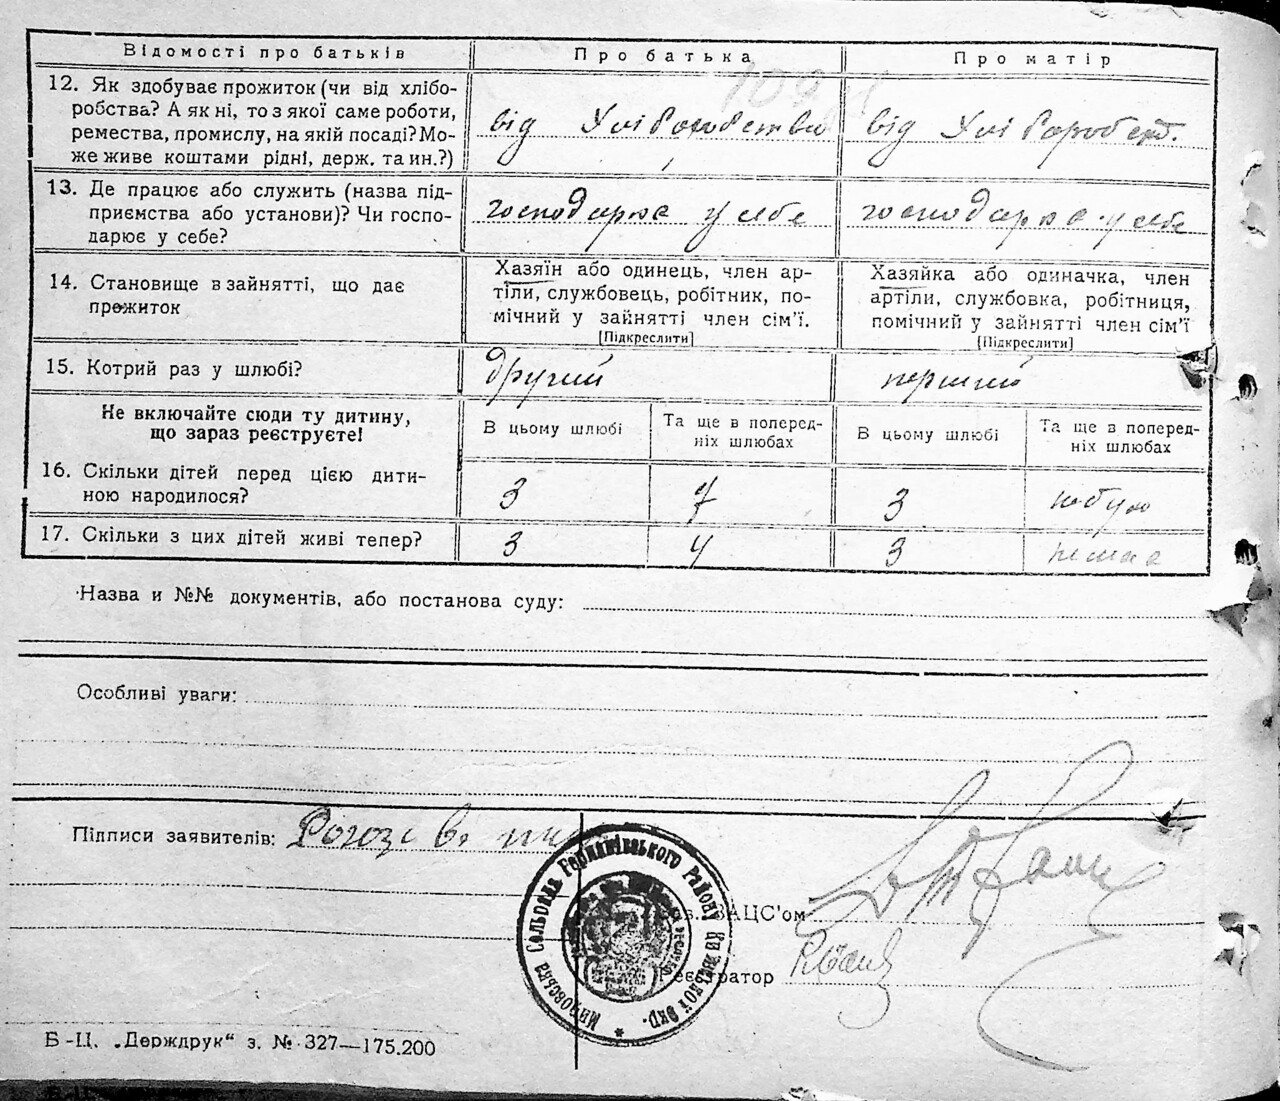 Відомості про батьків
Про батька
Про матір
12. Як здобуває прожиток (чи від хлібо-
робства? А як ні, то з якої саме роботи,
ремества, промислу, на якій посаді? Мо-
же живе коштами рідні, держ. та ин.?)
від Хліборобства
від Хліборобст.
13. Де працює або служить (назва під-
приємства або установи)? Чи госпо-
дарює у себе?
господарює у себе
господарює у себе
14. Становище в зайнятті, що дає
прожиток
Хазяїн або одинець, член ар-
тіли, службовець, робітник, по-
мічний у зайнятті член сім'ї.
[Підкреслити]
Хазяйка або одиначка, член
артіли, службовка, робітниця,
помічний у зайнятті член сім'ї
[Підкреслити]
15. Котрий раз у шлюбі?
другий
перший
Не включайте сюди ту дитину,
що зараз реєструєте!
В цьому шлюбі
Та ще в поперед-
ніх шлюбах
В цьому шлюбі
Та ще в поперед-
ніх шлюбах
16. Скільки дітей перед цією дити-
ною народилося?
3
7
3
не було
17. Скільки з цих дітей живі тепер?
3
4
3
немає
Назва и №№ документів, або постанова суду:
Особливі уваги:
Підписи заявителів:
Сільради Германівського Району Київської Окр.
ЗАЦС'ом
Реєстратор
Б-Ц. „Держдрук“ з. № 327—175.200